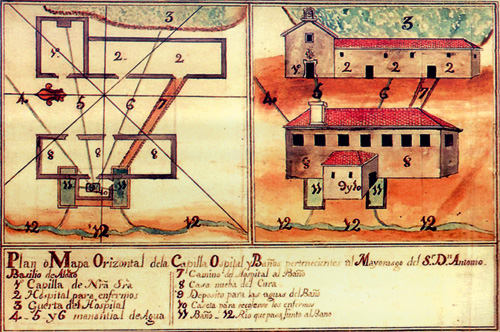 3
1.
2.
2
4.
5
6
7
8
8
11
11
12
12
12
3
1
2
2
2
4
5
6
7
8
8
11
11
9 y 10
12
12
Plan o Mapa Orizontal dela Capilla Ospital y Baños pertenecientes al Mayorasgo del Sr. Dn. Antonio
Basilio de
1 Capilla de Nrã Srã
2 Hospital para enfermos
3 Guerta del Hospital
4 - 5 y 6 manantial de Agua
7 Camino del Hospital al Baño
8 Casa nueba del Cura
9 Deposito para las aguas del Baño
10 Caseta para los enfermos
11 Baño 12 Rio que pasa junto al Baño